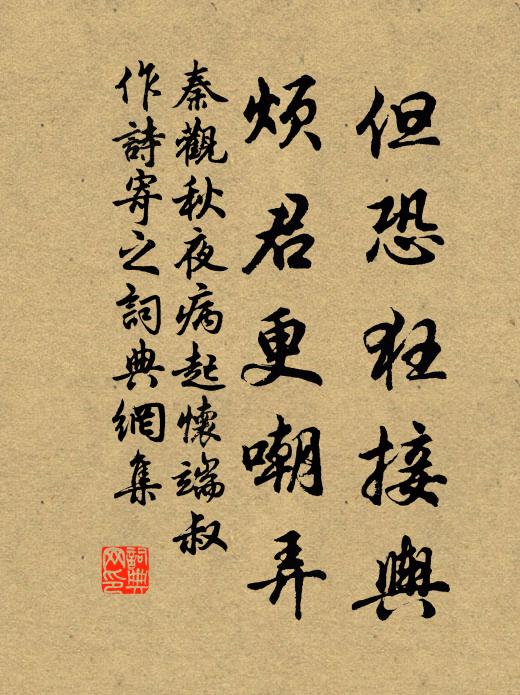 但恐狂接輿
煩君更嘲弄
秦觀秋夜病起懷端叔
作詩寄之詞典網集
詞典
网印